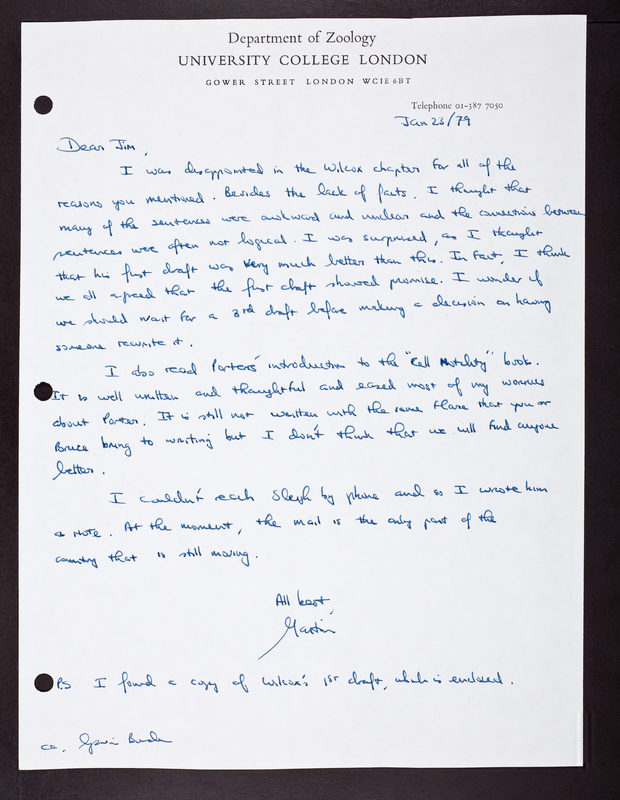 Department of Zoology
UNIVERSITY COLLEGE LONDON
GOWER STREET LONDON WC1E 6BT
Telephone 01-387 7050
Jan 23/79
Dear Jim,
I was disappointed in the Wilcox chapter for all of the
reasons you mentioned. Besides the lack of facts, I thought that
many of the sentences were awkward and unclear and the connections between
sentences were often not logical. I was surprised, as I thought
that his first draft was very much better than this. In fact, I think
we all agreed that the first draft showed promise. I wonder if
we should wait for a 3rd draft before making a decision on having
someone rewrite it.
I also read Porter's introduction to the "Cell Motility" book.
It is well written and thoughtful and eased most of my worries
about Porter. It is still not written with the same flare that you or
Bruce bring to writing but I don't think that we will find anyone
better.
I couldn't reach Sleigh by phone and so I wrote him
a note. At the moment, the mail is the only part of the
country that is still moving.
All best,
Martin
P.S. I found a copy of Wilcox's 1st draft, which is enclosed.
cc.